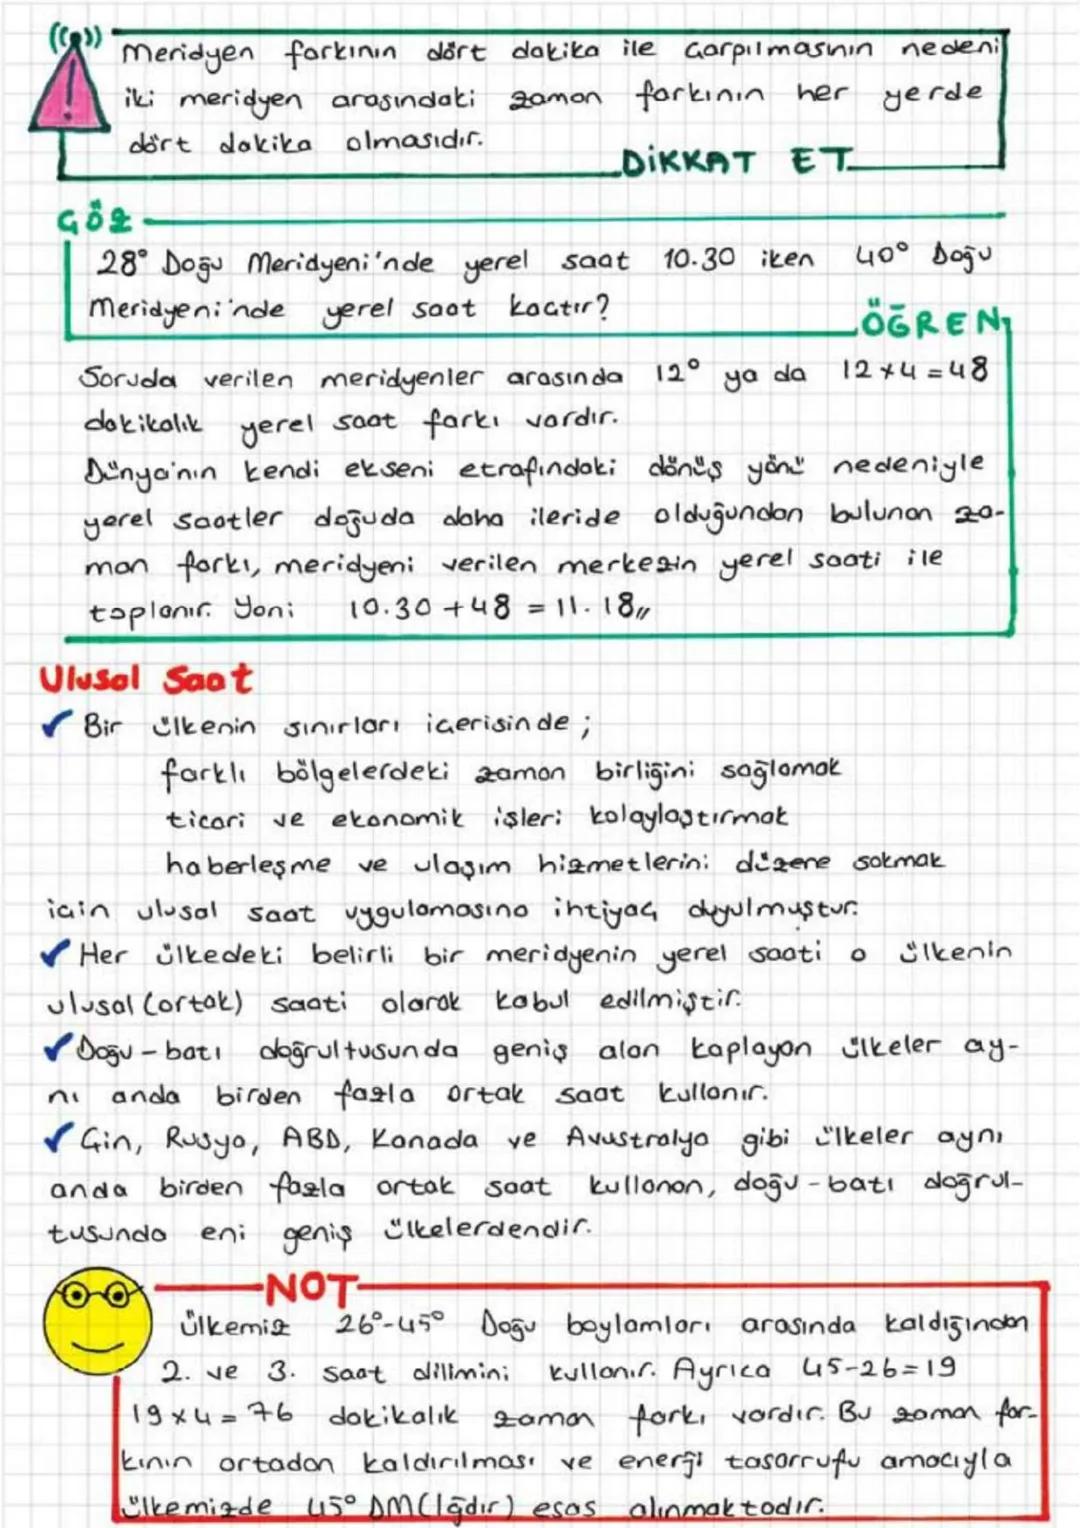 Meridyen farkının dört dakika ile çarpılmasının nedeni
iki meridyen arasındaki zaman farkının her yerde
dört dakika olmasıdır.
DİKKAT ET
ÇÖZ
28° Doğu Meridyeni'nde yerel saat 10.30 iken 40° Doğu
Meridyeni'nde yerel saat kaçtır?
ÖĞREN
Soruda verilen meridyenler arasında 12° ya da 12x4=48
dakikalık yerel saat farkı vardır.
Dünya'nın kendi ekseni etrafındaki dönüş yönü nedeniyle
yerel saatler doğuda daha ileride olduğundan bulunan za-
man farkı, meridyeni verilen merkezin yerel saati ile
toplanır. Yani 10.30+48 = 11.18//
Ulusal Saat
✓ Bir ülkenin sınırları içerisinde;
farklı bölgelerdeki zaman birliğini sağlamak
ticari ve ekonomik işleri kolaylaştırmak
haberleşme ve ulaşım hizmetlerini düzene sokmak
için ulusal saat uygulamasına ihtiyaç duyulmuştur.
✓ Her ülkedeki belirli bir meridyenin yerel saati o ülkenin
ulusal (ortak) saati olarak kabul edilmiştir.
✓ Doğu-batı doğrultusunda geniş alan kaplayan ülkeler ay-
nı anda birden fazla ortak saat kullanır.
✓ Çin, Rusya, ABD, Kanada ve Avustralya gibi ülkeler aynı
anda birden fazla ortak saat kullanan, doğu-batı doğrul-
tusunda eni geniş ülkelerdendir.
NOT
Ülkemiz 26°-45° Doğu boylamları arasında kaldığından
2. ve 3. saat dilimini kullanır. Ayrıca 45-26=19
19x4=76 dakikalık zaman farkı vardır. Bu zaman far-
kının ortadan kaldırılması ve enerji tasarrufu amacıyla
ülkemizde 45° DM(Iğdır) esas alınmaktadır.